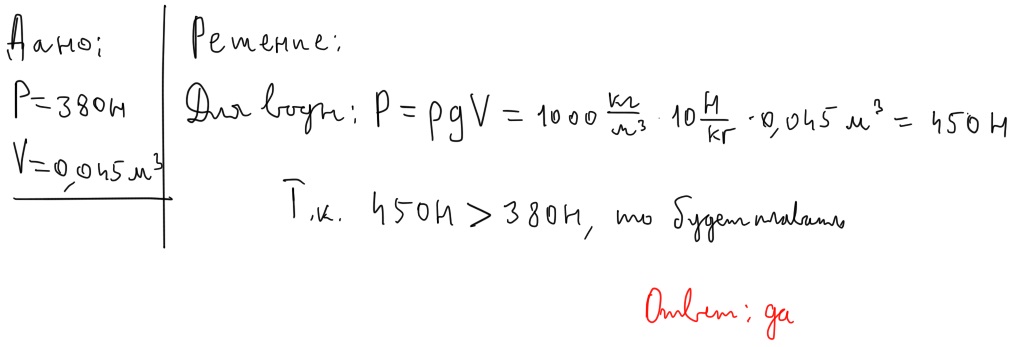 Дано:
P=380Н
V=0,045м³
Решение:
Для воды: P = ρgV = 1000 кг/м³ · 10 Н/кг · 0,045 м³ = 450 Н
Т.к. 450Н > 380Н, то будет плавать
Ответ: да